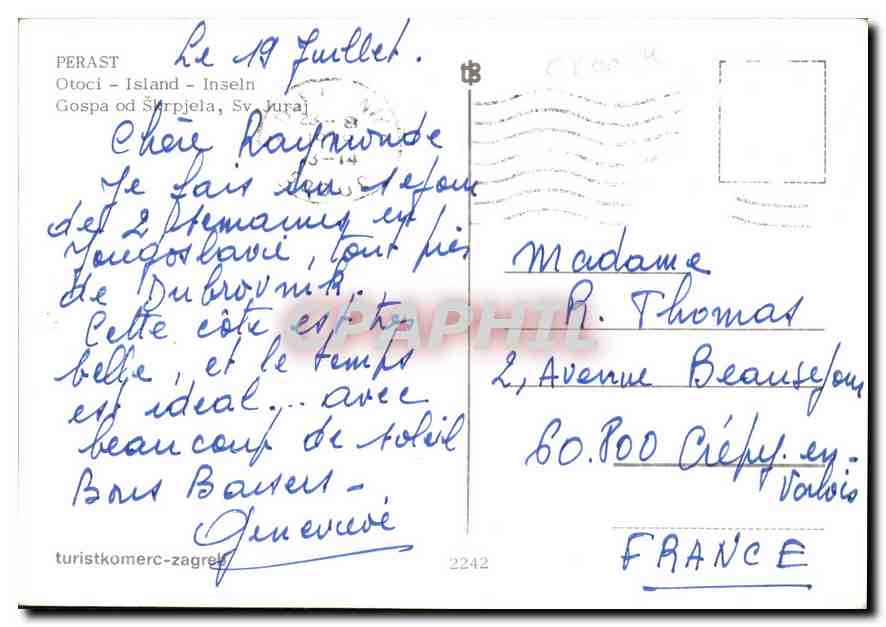 PERAST
Otoci - Island - Inseln
Gospa od Škrpjela, Sv. Juraj
Le 19 Juillet.
Chère Raymonde
Je fais un séjour
de 2 semaines en
Yougoslavie, tout près
de Dubrovnik.
Cette côte est très
belle, et le temps
est idéal... avec
beaucoup de soleil
Bons Baisers -
Geneviève
turistkomerc-zagreb
2242
Madame
R. Thomas
2, Avenue Beauséjour
60.800 Crépy-en-
Valois
FRANCE
CPAPHIL